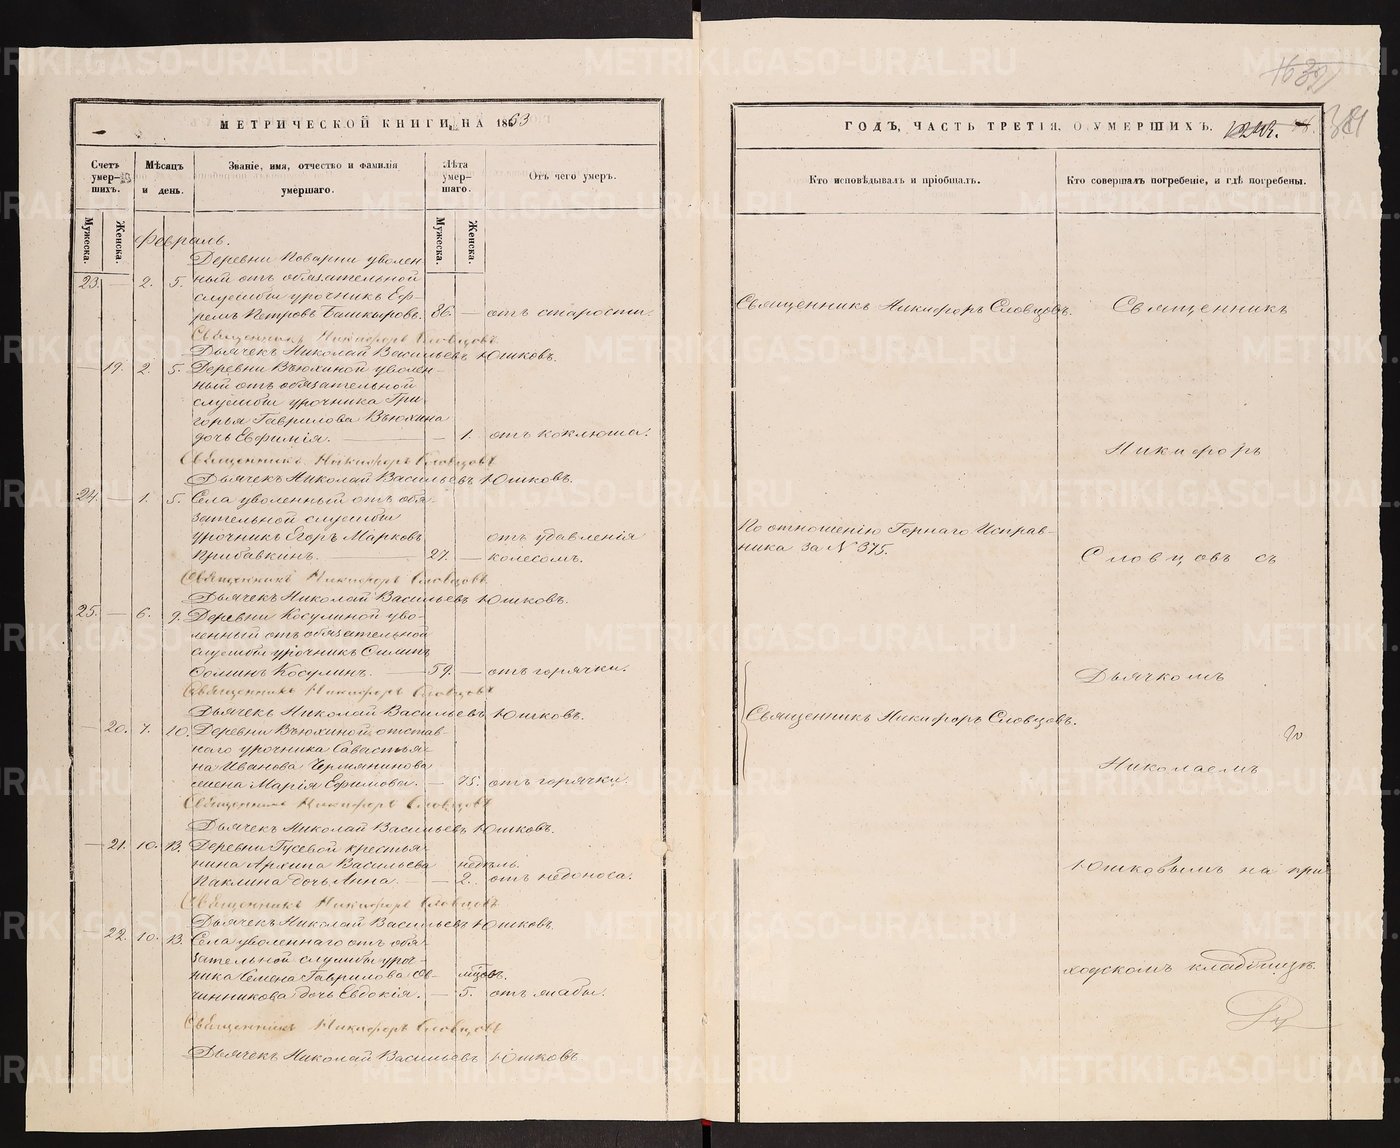 МЕТРИЧЕСКОЙ КНИГИ, НА 1863
Счетъ умерших.
Мѣсяцъ и день.
Званіе, имя, отчество и фамилія умершаго.
Лѣта умершаго.
Отъ чего умеръ.
Мужеска.
Женска.
Мужеска.
Женска.
Февраль.
Деревни Поварни уволен-
23. — 2. 5. ный отъ обязательной
службы урочникъ Еф-
ремъ Петровъ Башкыровъ. 86. — отъ старости.
Священникъ Никифоръ Словцовъ
Дьячекъ Николай Васильевъ Юшковъ.
— 19. 2. 5. Деревни Вьюхиной уволен-
ный отъ обязательной
службы урочника Гри-
горья Гаврилова Вьюхина
дочь Евфимія. — 1. отъ коклюша.
Священникъ Никифоръ Словцовъ
Дьячекъ Николай Васильевъ Юшковъ.
24. — 1. 5. Села уволенный отъ обя-
зательной службы
урочникъ Егоръ Марковъ отъ удавленія
Прибавкинъ. — 27. — колесомъ.
Священникъ Никифоръ Словцовъ
Дьячекъ Николай Васильевъ Юшковъ.
25. — 6. 9. Деревни Косулиной уво-
ленный отъ обязательной
службы урочникъ
Косулинъ. — 59. — отъ горячки.
Священникъ Никифоръ Словцовъ
Дьячекъ Николай Васильевъ Юшковъ.
— 20. 7. 10. Деревни Вьюхиной, отстав-
наго урочника Савастья-
на Иванова Чермянинова
жена Марія Ефимова. — 75. отъ горячки.
Священникъ Никифоръ Словцовъ
Дьячекъ Николай Васильевъ Юшковъ.
— 21. 10. 13. Деревни Гусевой крестья-
нина Архипа Васильева недѣль.
Паклина дочь Анна. — 2. отъ недоноса.
Священникъ Никифоръ Словцовъ
Дьячекъ Николай Васильевъ Юшковъ.
— 22. 10. 13. Села уволеннаго отъ обя-
зательной службы уроч-
ника Семена Гаврилова Ов- мѣсцовъ.
чинникова дочь Евдокія. — 5. отъ жабы.
Священникъ Никифоръ Словцовъ
Дьячекъ Николай Васильевъ Юшковъ
ГОДЪ, ЧАСТЬ ТРЕТІЯ. О УМЕРШИХЪ.
Кто исповѣдывалъ и пріобщалъ.
Кто совершалъ погребеніе, и гдѣ погребены.
Священникъ Никифоръ Словцовъ. Священникъ
Никифоръ
По отношенію Горнаго Исправ-
ника за № 375. Словцовъ съ
Дьячкомъ
Священникъ Никифоръ Словцовъ.
Николаемъ
Юшковымъ на при-
ходскомъ кладбищѣ.
METRIKI.GASO-URAL.RU